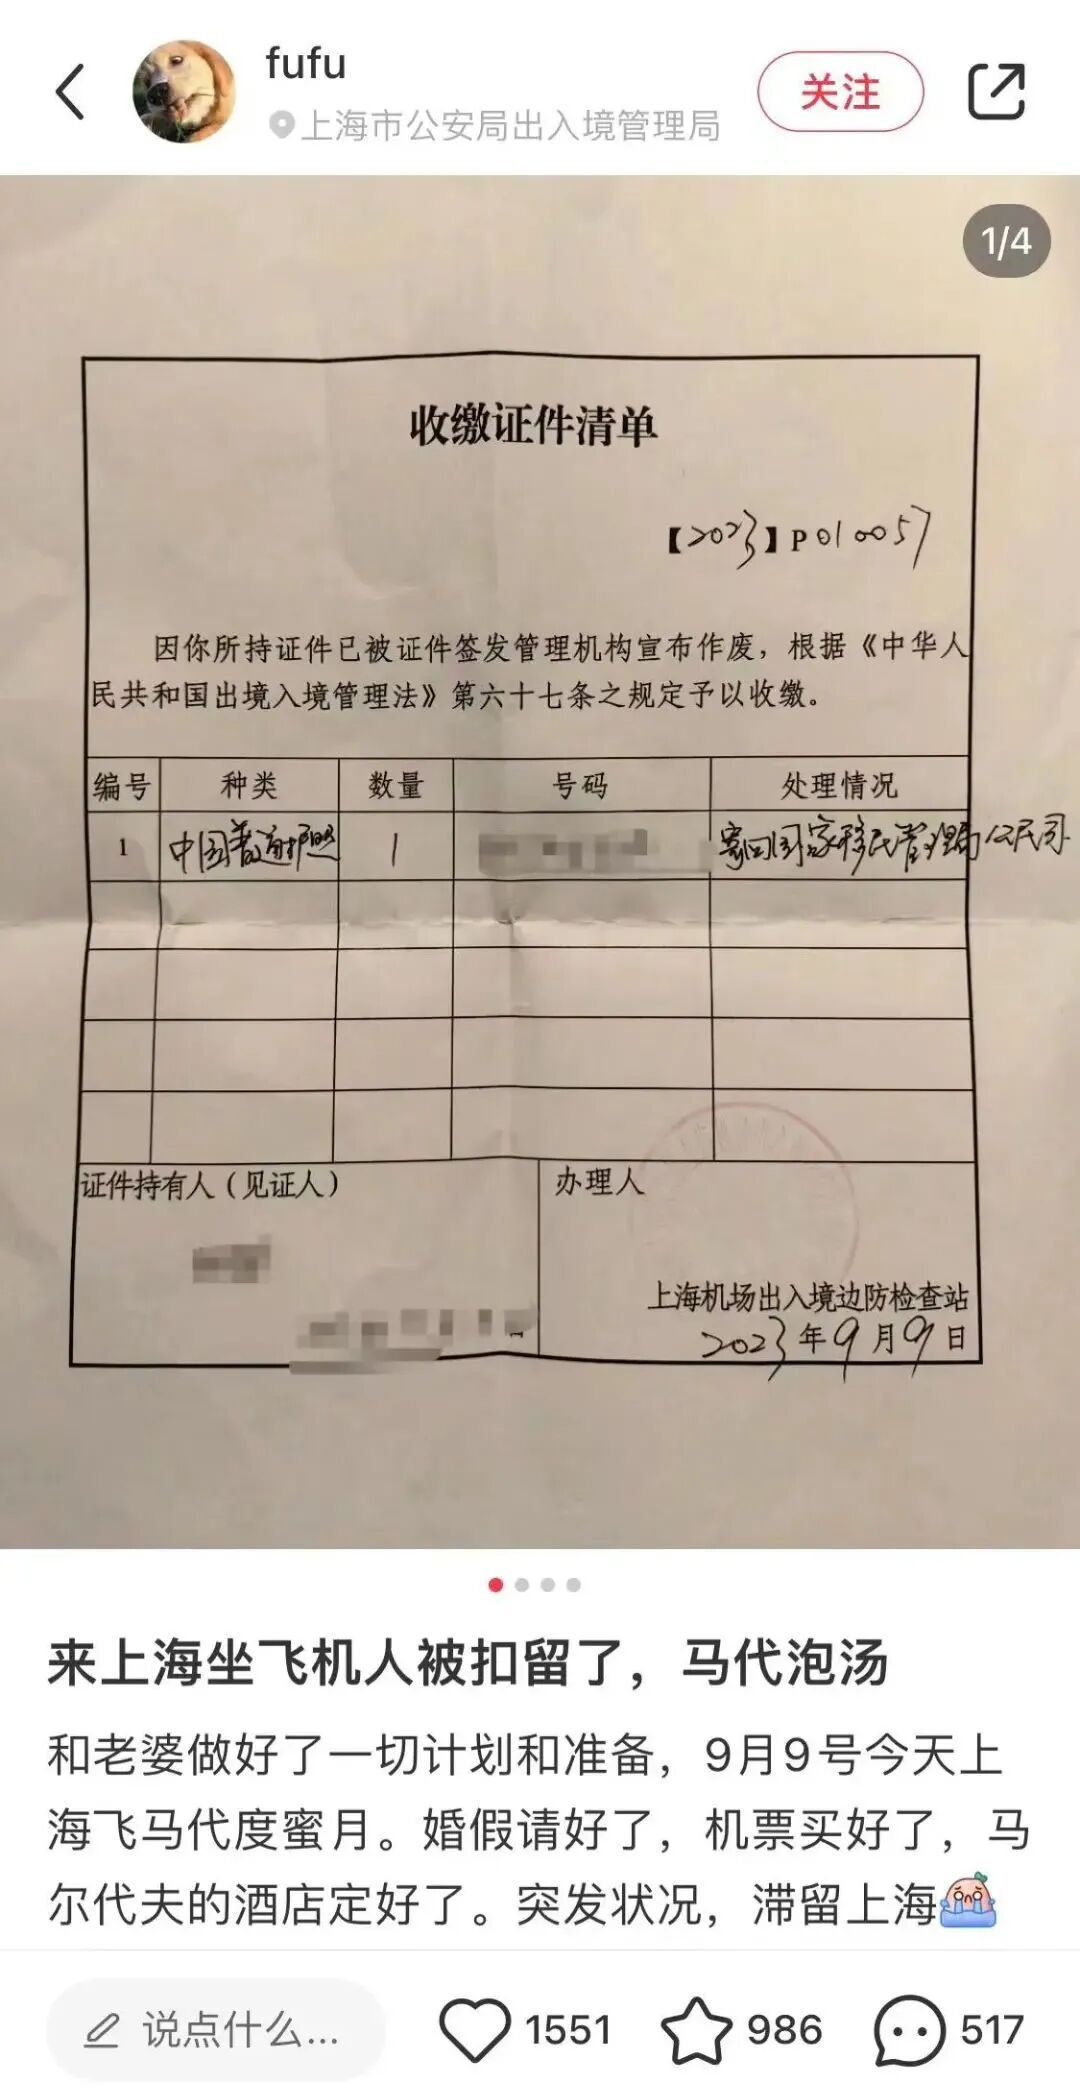 fufu
上海市公安局出入境管理局
关注
1/4
收缴证件清单
【2023】P010057
因你所持证件已被证件签发管理机构宣布作废，根据《中华人
民共和国出境入境管理法》第六十七条之规定予以收缴。
编号 种类 数量 号码 处理情况
1 中国普通护照 1 寄回国家移民管理局公民司
证件持有人（见证人） 办理人
上海机场出入境边防检查站
2023年9月9日
来上海坐飞机人被扣留了，马代泡汤
和老婆做好了一切计划和准备，9月9号今天上
海飞马代度蜜月。婚假请好了，机票买好了，马
尔代夫的酒店定好了。突发状况，滞留上海
说点什么... 1551 986 517